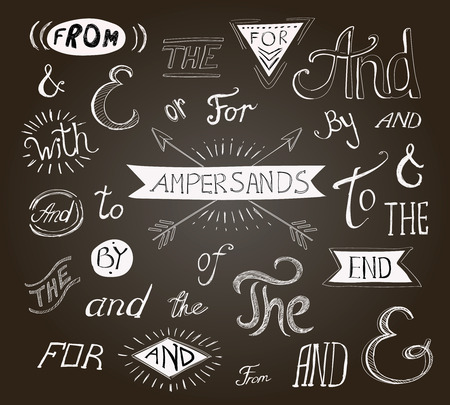 FROM
THE
FOR
And
&
&
or
For
with
By
AND
AMPERSANDS
&
And
to
to
THE
BY
of
END
THE
and
the
The
FOR
AND
From
AND
&